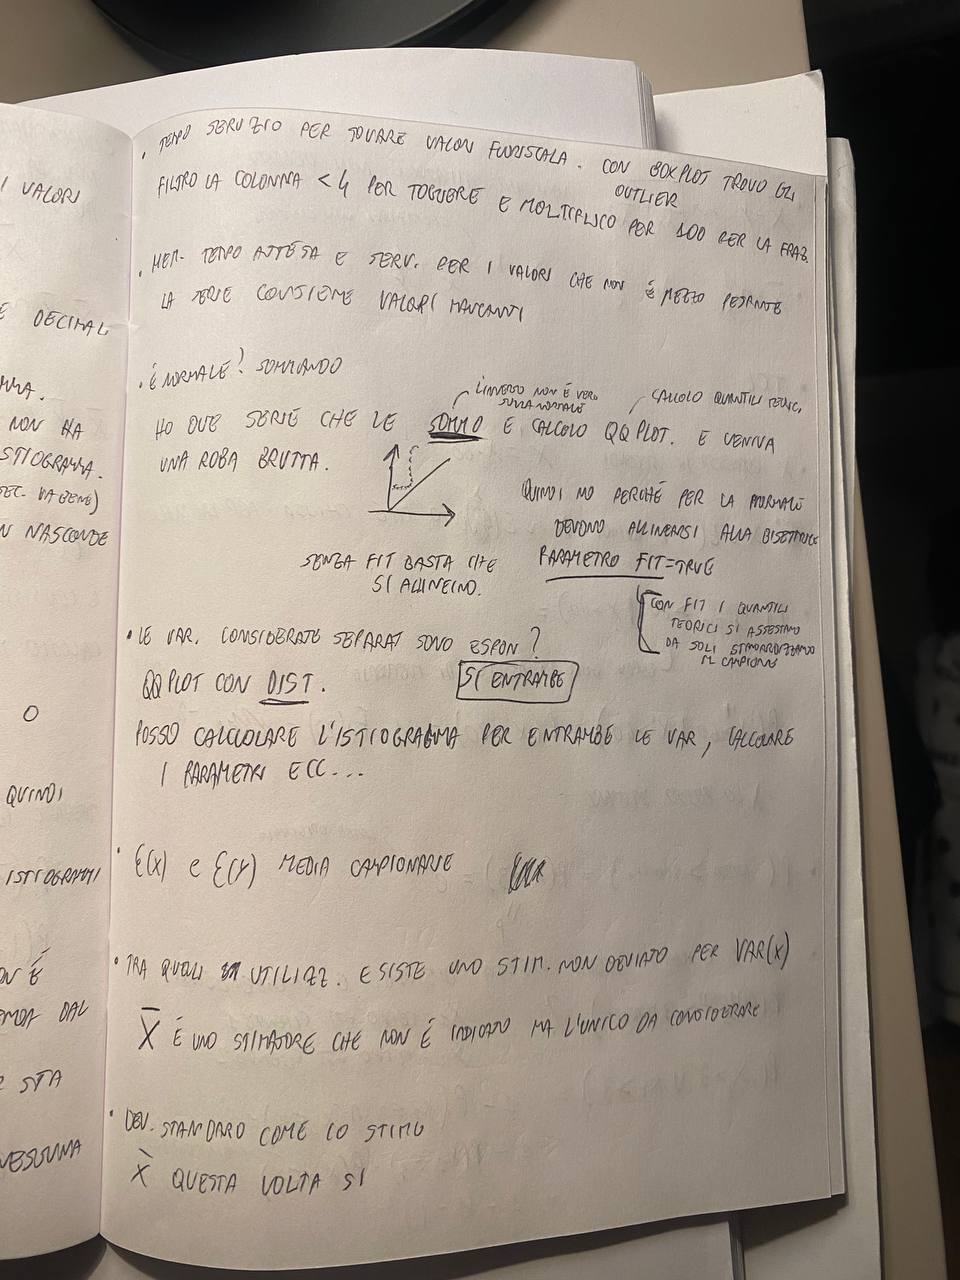 I VALORI
E DECIMAL
NON HA
STIOGRAMMA.
SEC. VA BENE)
N NASCONDE
O
QUINDI
ISTIOGRAMMI
ON È
DAL
STA
NESSUNA
• TEMPO SERVIZIO PER TOVARE VALORI FUORISCALA. CON BOXPLOT TROVO GLI
OUTLIER
FILTRO LA COLONNA < 4 PER TOGLIERE E MOLTIPLICO PER 100 PER LA FRAZ.
• TEMPO ATTESA E SERV. PER I VALORI CHE NON È MEZZO PESANTE
LA SERIE CONTIENE VALORI MANCANTI
• È NORMALE? SOMMANDO
L'INVERSO NON È VERO
SULLA NORMALE
CALCOLO QUANTILI TEORICI
HO DUE SERIE CHE LE SOMMO E CALCOLO QQPLOT. E VENIVA
UNA ROBA BRUTTA.
QUINDI NO PERCHÉ PER LA NORMALE
DEVONO ALLINEARSI ALLA BISETTRICE
SENZA FIT BASTA CHE
SI ALLINEINO.
PARAMETRO FIT=TRUE
CON FIT I QUANTILI
TEORICI SI ASSESTANO
DA SOLI STANDARDIZZANDO
IL CAMPIONE
• LE VAR. CONSIDERATE SEPARAT SONO ESPON?
QQPLOT CON DIST.
SI ENTRAMBE
POSSO CALCOLARE L'ISTIOGRAMMA PER ENTRAMBE LE VAR, CALCOLARE
I PARAMETRI ECC...
• E(X) e E(Y) MEDIA CAMPIONARIE
• TRA QUELI UTILIZZ. ESISTE UNO STIM. NON DEVIATO PER VAR(X)
X̄ È UNO STIMATORE CHE NON È INDICATO MA L'UNICO DA CONSIDERARE
• DEV. STANDARD COME LO STIMO
X̄ QUESTA VOLTA SI